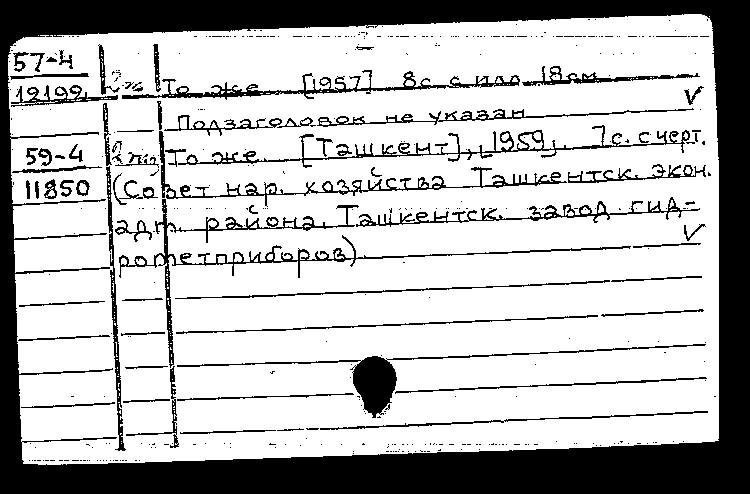 2
57-4
12192 2эк То же [1957] 8с с илл. 18см
Подзаголовок не указан V
59-4 2эк То же. [Ташкент], [1959]. 7с. с черт.
11850 (Совет нар. хозяйства Ташкентск. экон.
адм. района. Ташкентск. завод гид-
рометприборов) V